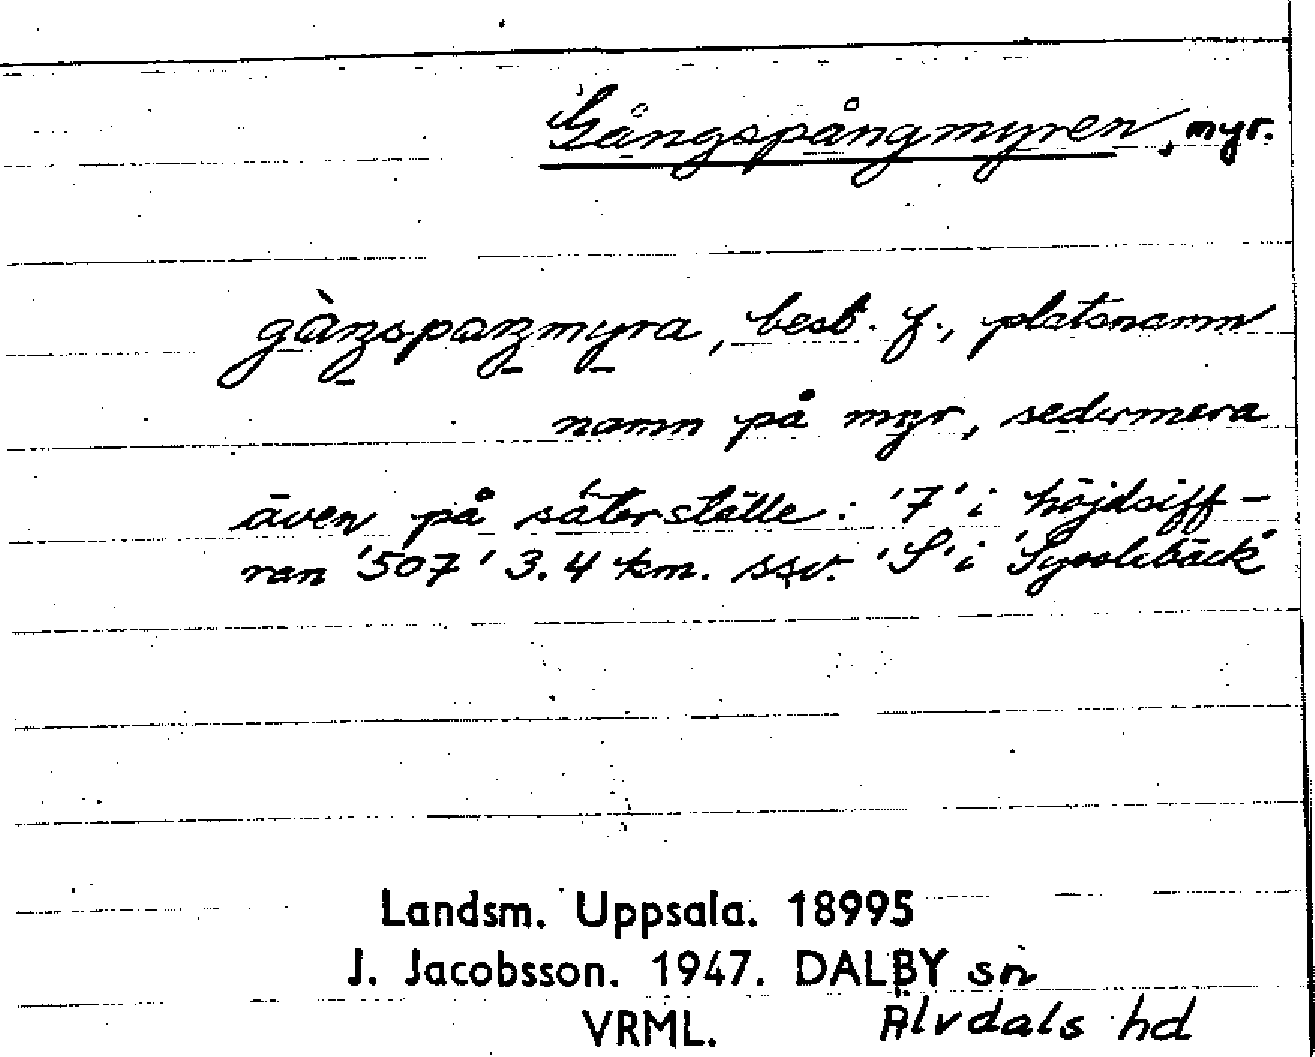 Gångspångmyren, myr.
gàŋspaŋmyra, best. f., platsnamn
namn på myr, sedermera
även på säterställe: '7' i höjdsiff-
ran '507' 3.4 km. ssv. 'S' i 'Sysslebäck'
Landsm. Uppsala. 18995
J. Jacobsson. 1947. DALBY sn
VRML. Älvdals hd